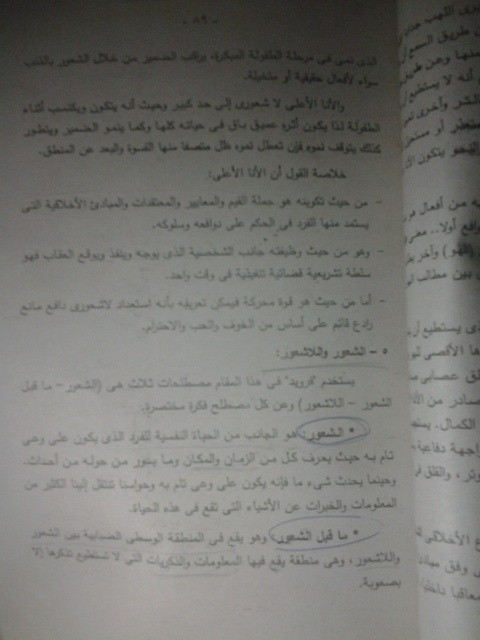 - ٨٩ -
الذى نمى فى مرحلة الطفولة المبكرة، يراقب الضمير من خلال الشعور بالذنب
سواء لأفعال حقيقية أو متخيلة.
والأنا الأعلى لا شعورى إلى حد كبير وحيث أنه يتكون ويكتسب أثناء
الطفولة لذا يكون أثره عميق باق فى حياته كلها وكما ينمو الضمير ويتطور
كذلك يتوقف نموه فإن تعطل نموه ظل متصفا منها القسوة والبعد عن المنطق.
خلاصة القول أن الأنا الأعلى:
- من حيث تكوينه هو جملة القيم والمعايير والمعتقدات والمبادئ الأخلاقية التى
يستمد منها الفرد فى الحكم على دوافعه وسلوكه.
- وهو من حيث وظيفته جانب الشخصية الذى يوجه وينقد ويوقع العقاب فهو
سلطة تشريعية قضائية تنفيذية فى وقت واحد.
- أما من حيث هو قوة محركة فيمكن تعريفه بأنه استعداد لاشعورى دافع مانع
رادع قائم على أساس من الخوف والحب والاحترام.
٥ - الشعور واللاشعور:
يستخدم "فرويد" فى هذا المقام مصطلحات ثلاث هى (الشعور - ما قبل
الشعور - اللاشعور) وعن كل مصطلح فكرة مختصرة.
* الشعور: هو الجانب من الحياة النفسية للفرد الذى يكون على وعى
تام به حيث يعرف كل من الزمان والمكان وما يدور من حوله من أحداث.
وحينما يحدث شىء ما فإنه يكون على وعى تام به وحواسنا تنتقل إلينا الكثير من
المعلومات والخبرات عن الأشياء التى تقع فى هذه الحياة.
* ما قبل الشعور: وهو يقع فى المنطقة الوسطى الضبابية بين الشعور
واللاشعور، وهى منطقة يقع فيها المعلومات والذكريات التى لا نستطيع تذكرها إلا
بصعوبة.